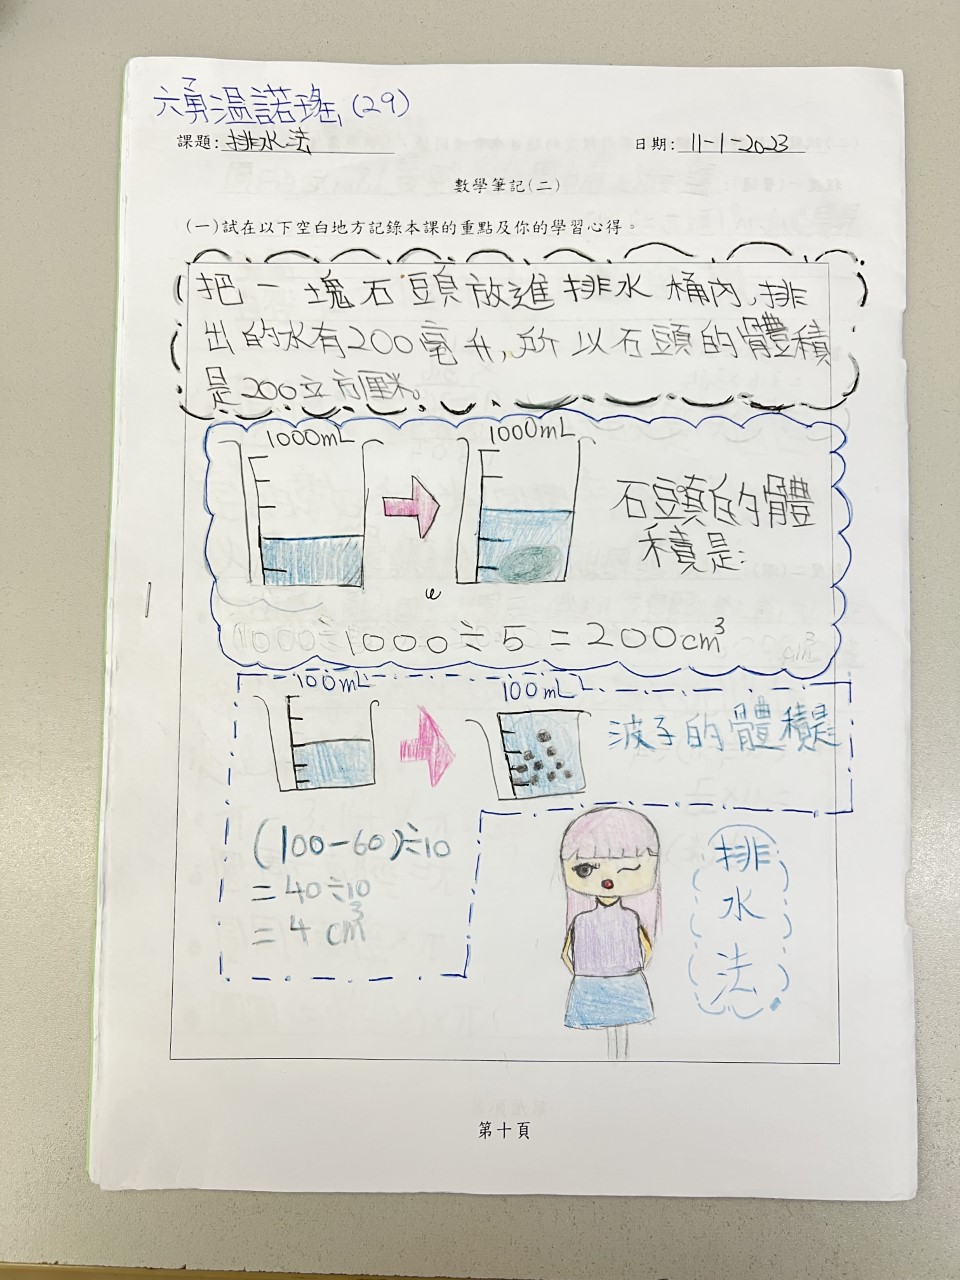 六勇溫諾瑤 (29)
課題: 排水法 日期: 11-1-2023
數學筆記(二)
(一)試在以下空白地方記錄本課的重點及你的學習心得。
把一塊石頭放進排水桶內,排
出的水有200毫升,所以石頭的體積
是200立方厘米。
1000mL 1000mL
石頭的體
積是:
1000÷5=200cm³
100mL 100mL
波子的體積是:
(100-60)÷10
=40÷10
=4cm³
排
水
法
第十頁